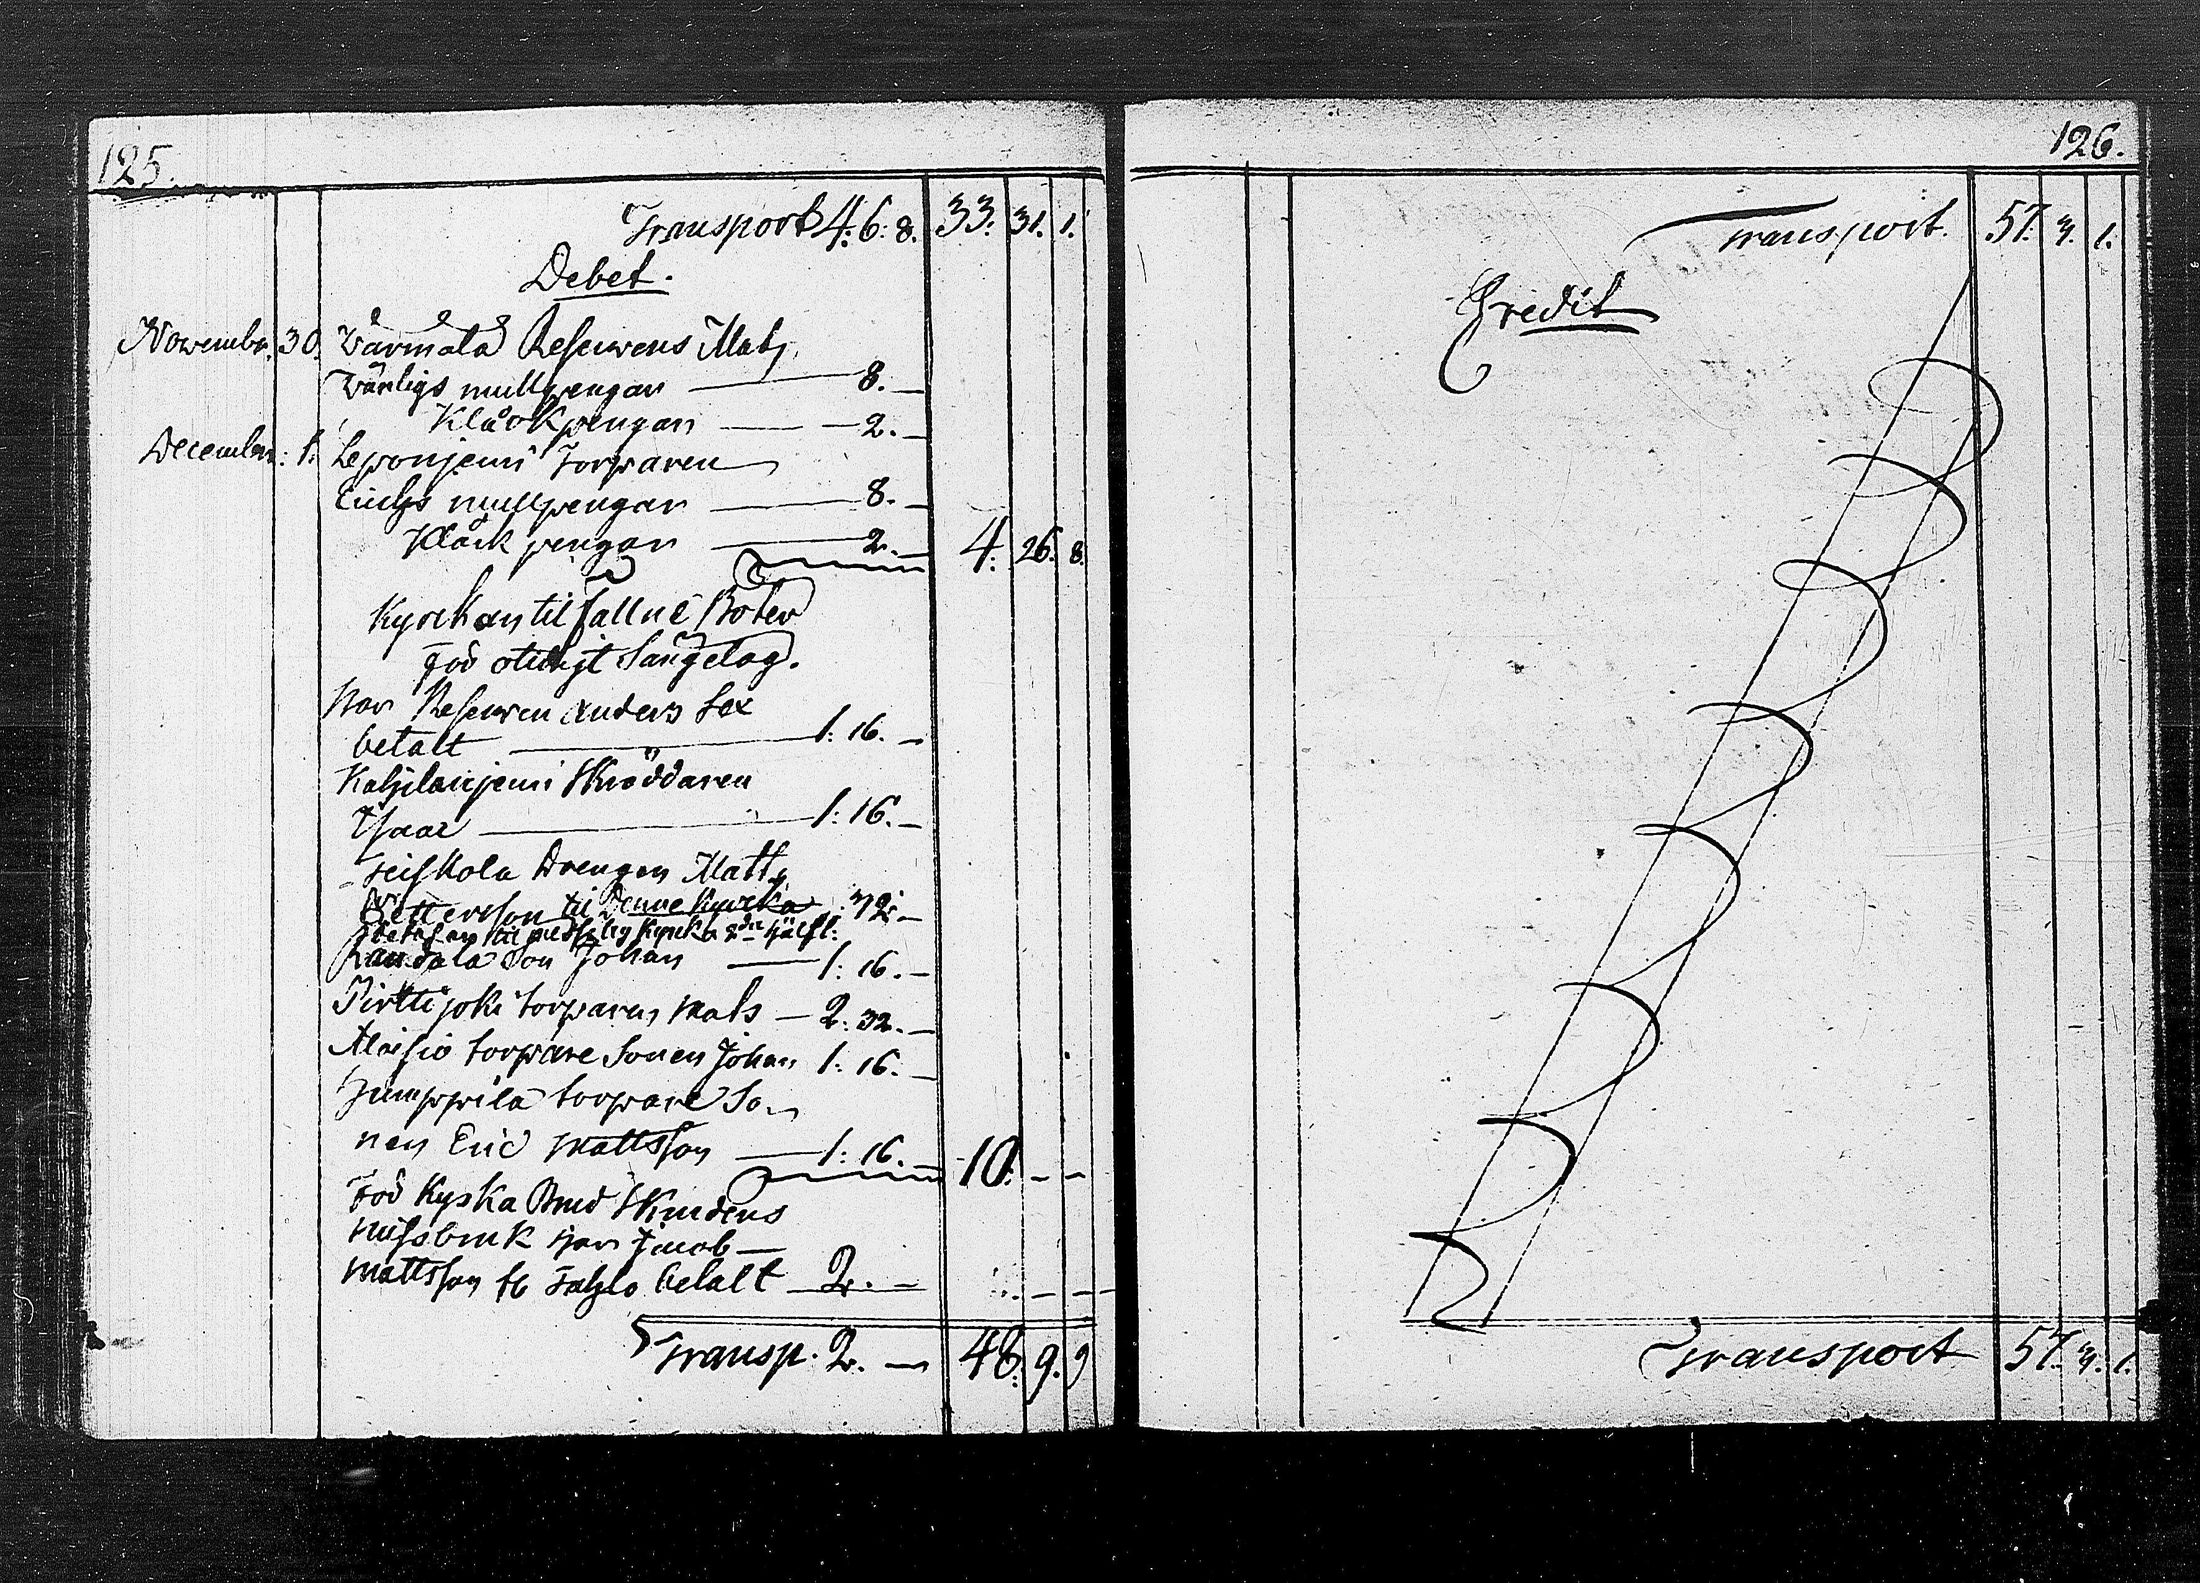 125.
Transport 4: 6: 8. 33. 31. 1.
Debet.
November. 30. Wärmälä Reserwens Matz
Wänligs mullpengar — 8. —
Kläckpengar — 2. —
December: 1. Leponjemi Torparen
Erichs mullpengar — 8. —
Kläckpengar — 2. — 4. 26. 8.
Kyrckan tilfallne Böter
för otidigt Sängelag.
har Reserwen Anders Lex
betalt — 1: 16. —
Kahilanjemi Skräddaren
Isaac — 1: 16. —
Drengen Matts
Pettersson til Denne Kyrcka 32. —
Kyrcka 2dre hälft:
Son Johan — 1: 16. —
Pirttijoki torparen Mats — 2: 32. —
torpare Sonen Johan 1: 16. —
Humppila torpare So-
nen Eric Mattsson — 1: 16. — 10. — —
För Kyska Brud Skrudens
missbruk har Jacob
Mattsson fr betalt — 2. —
Transp. 2. — 48. 9. 9
126.
Transport. 57. 3. 1.
Credit
Transport 57. 3. 1.